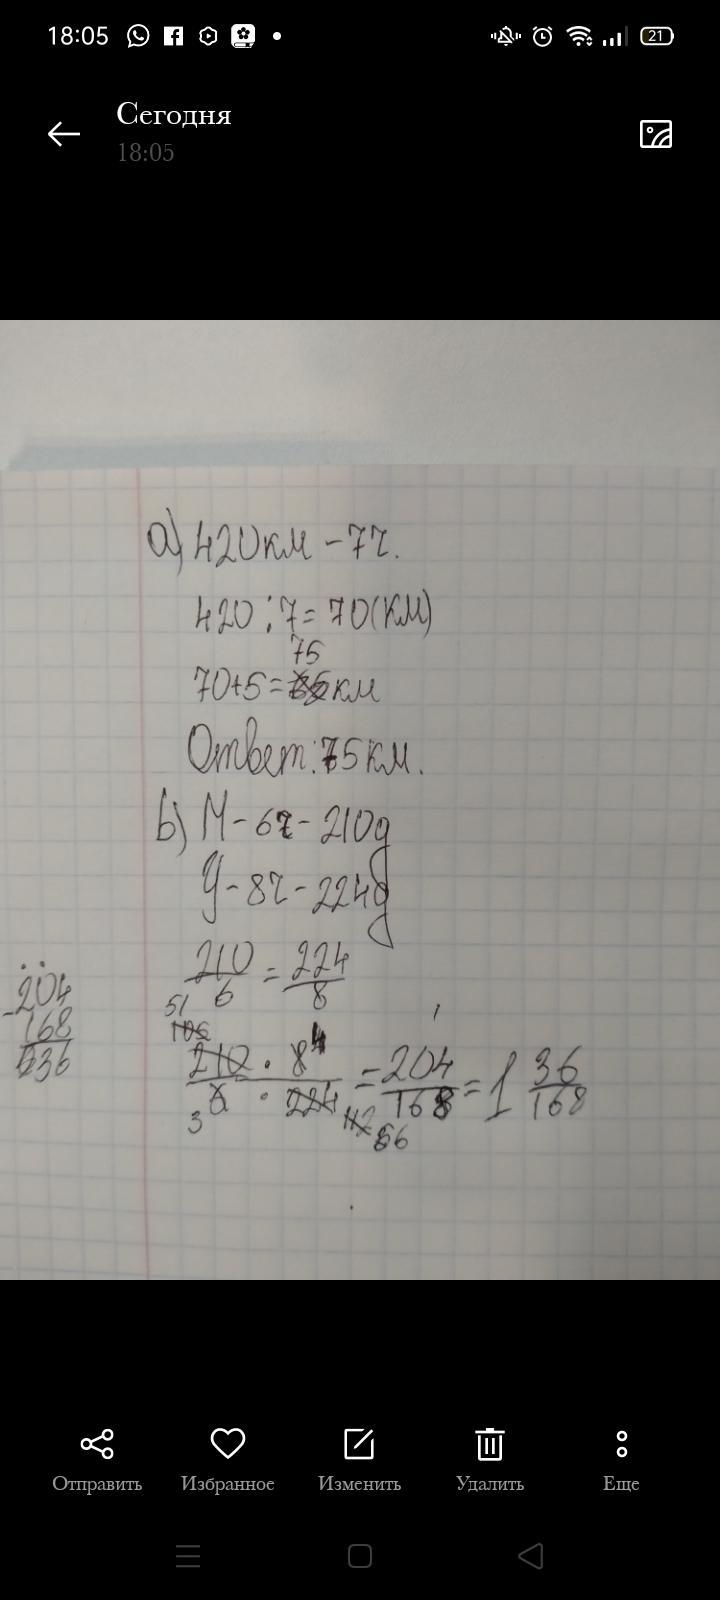 18:05
21
Сегодня
18:05
а) 420км - 7ч.
420 : 7 = 70(км)
75
70+5= км
Ответ: 75 км.
b) М - 6ч - 210д
У - 8ч - 224д
210/6 = 224/8
51
105
210 · 8 4 / 6 · 224 = 204/168 = 1 36/168
3 112 56
204
- 168
036
Отправить
Избранное
Изменить
Удалить
Еще